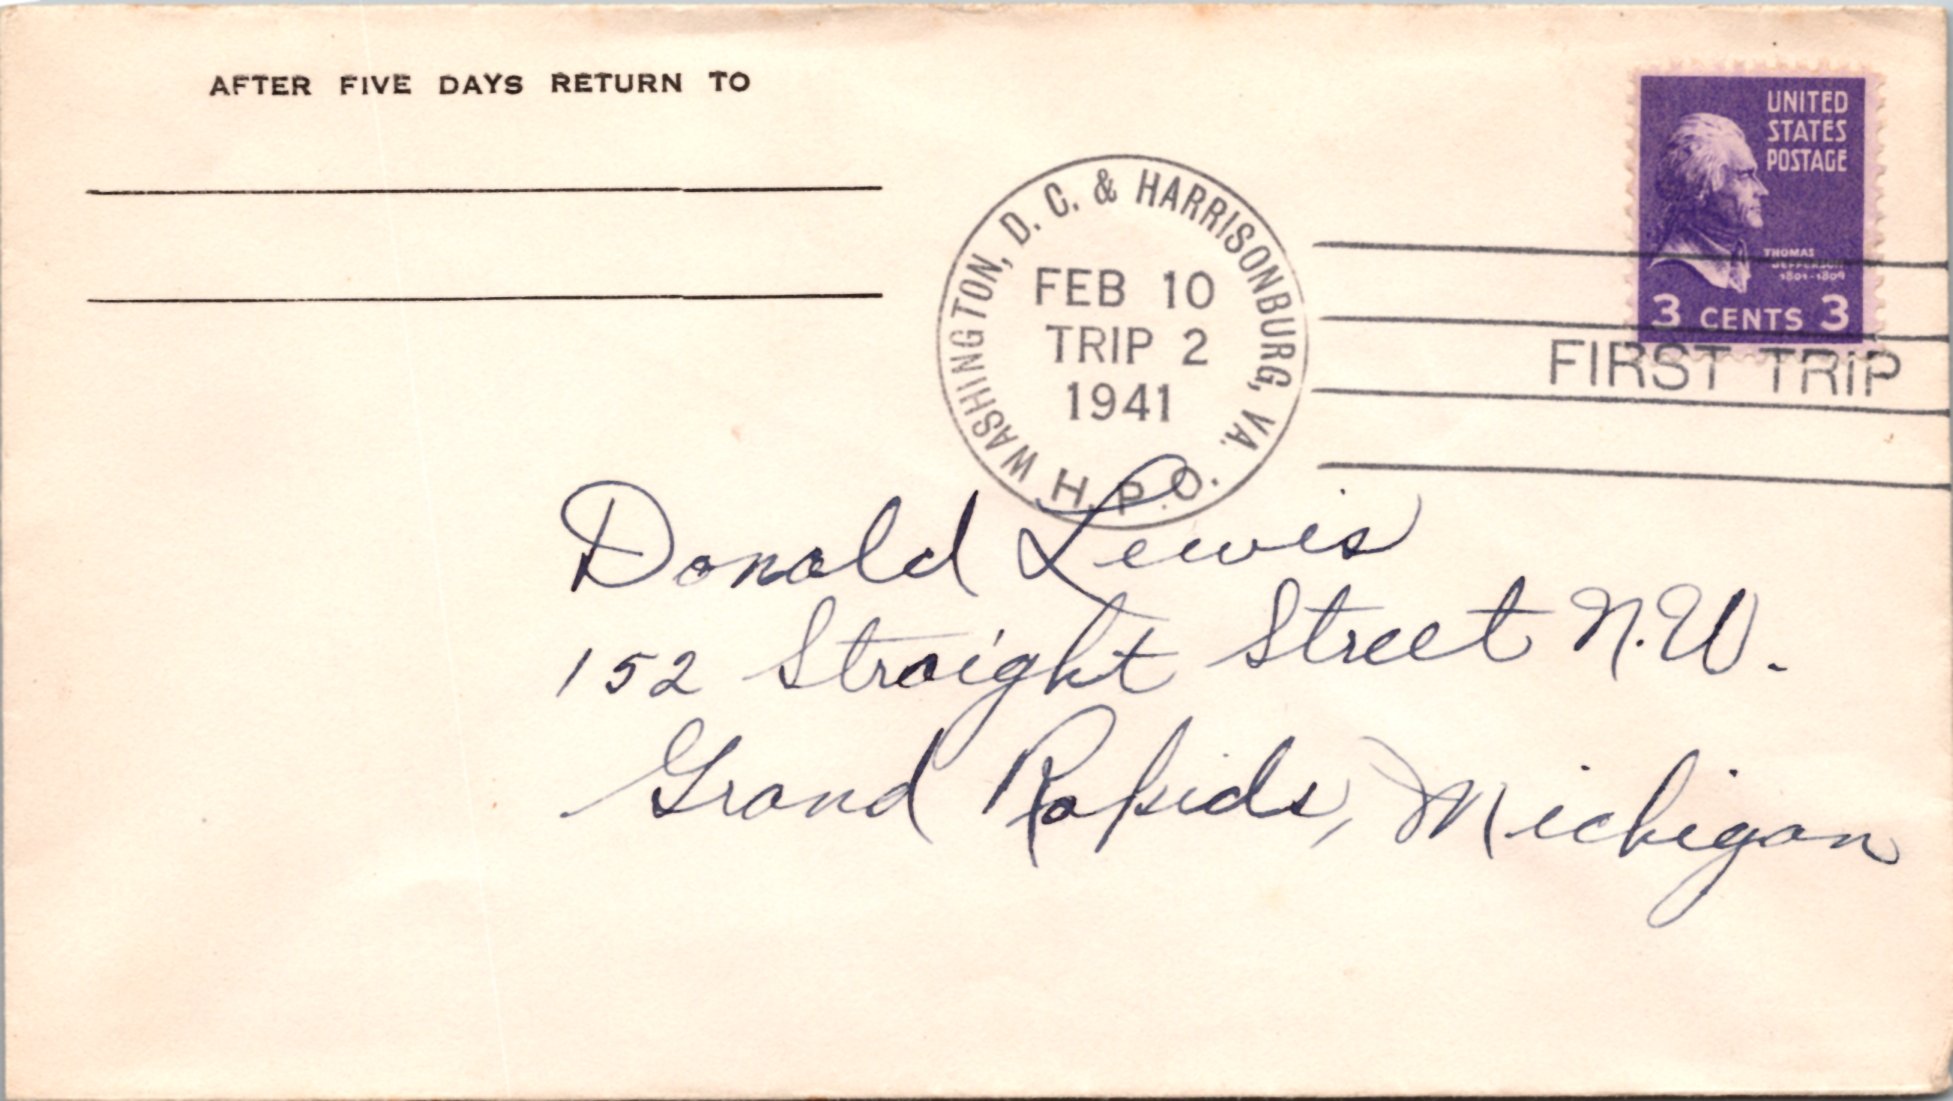 AFTER FIVE DAYS RETURN TO
WASHINGTON, D. C. & HARRISONBURG, VA.
FEB 10
TRIP 2
1941
H. P. O.
UNITED
STATES
POSTAGE
THOMAS
JEFFERSON
1801-1809
3 CENTS 3
FIRST TRIP
Donald Lewis
152 Straight Street N.W.
Grand Rapids, Michigan